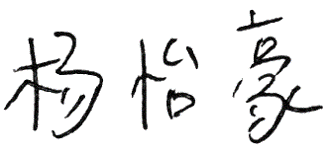 杨怡豪